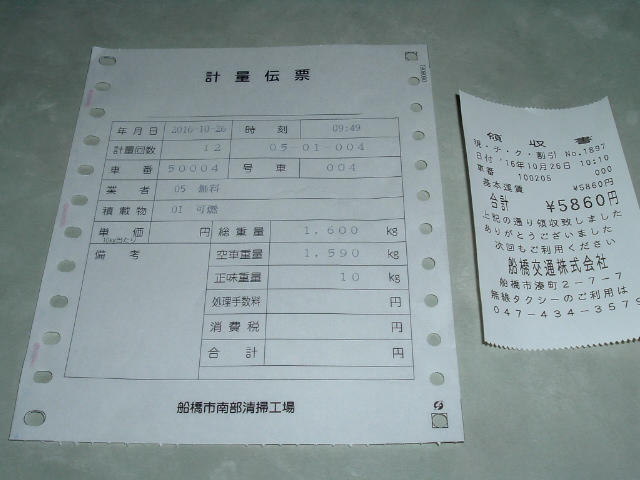 計量伝票
年月日 2016-10-26 時刻 09:49
計量回数 12 05-01-004
車番 50004 号車 004
業者 05 無料
積載物 01 可燃
単価 10kg当たり 円 総重量 1,600 kg
備考 空車重量 1,590 kg
正味重量 10 kg
処理手数料 円
消費税 円
合計 円
船橋市南部清掃工場
領収書
現・チ・ク・割引 No.1897
日付 '16年10月26日 10:10
車番 100205 000
基本運賃 ¥5860円
合計 ¥5860円
上記の通り領収致しました
ありがとうございました
次回もご利用ください
船橋交通株式会社
船橋市湊町2-7-7
無線タクシーのご利用は
047-434-3579